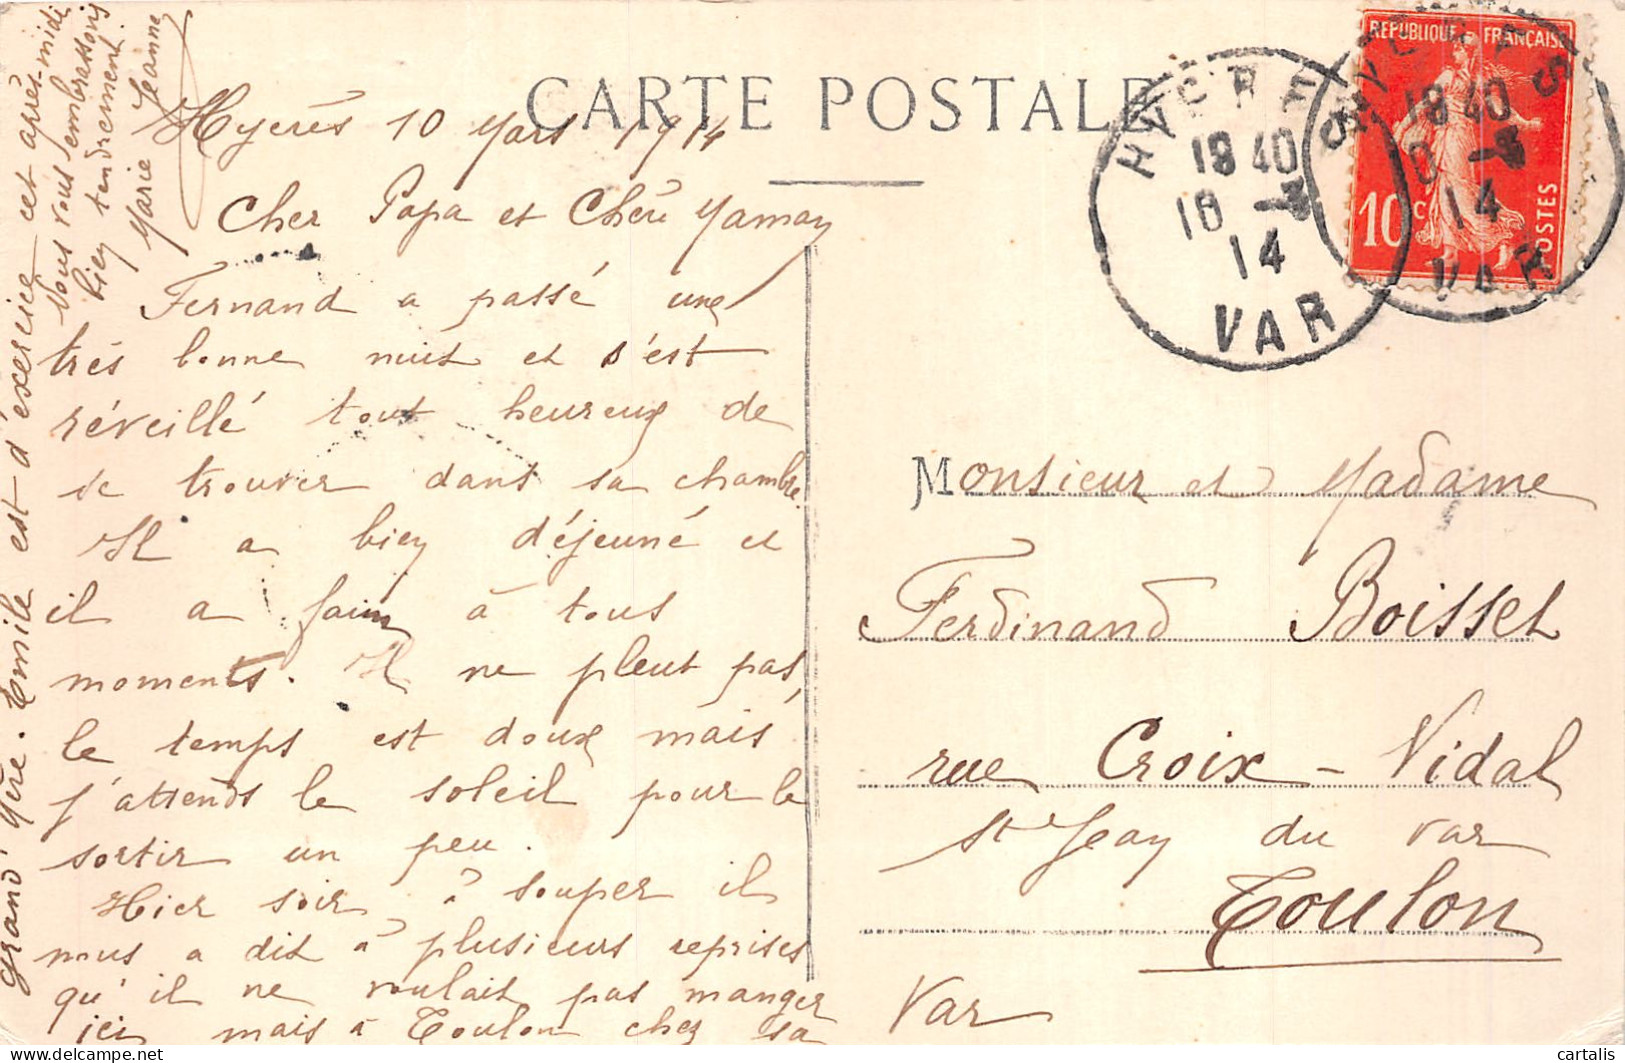 CARTE POSTALE
Hyères 10 Mars 1914
Cher Papa et Chère Maman
Fernand a passé une
très bonne nuit et s'est
réveillé tout heureux de
se trouver dans sa chambre
Il a bien déjeuné et
il a faim à tous
moments. Il ne pleut pas,
le temps est doux mais
j'attends le soleil pour le
sortir un peu.
Hier soir, à souper il
nous a dit à plusieurs reprises
qu'il ne voulait pas manger
ici mais à Toulon chez sa
grand'Mère. Emile est d'éxercice cet après-midi
Nous vous embrassons
bien tendrement.
Marie Jeanne
REPUBLIQUE FRANÇAISE
10 c
POSTES
HYERES
18 40
10 -3
14
VAR
HYERES
18 40
10 -3
14
VAR
Monsieur et Madame
Ferdinand Boisset
rue Croix-Vidal
St Jean du Var
Toulon
Var
cartalis